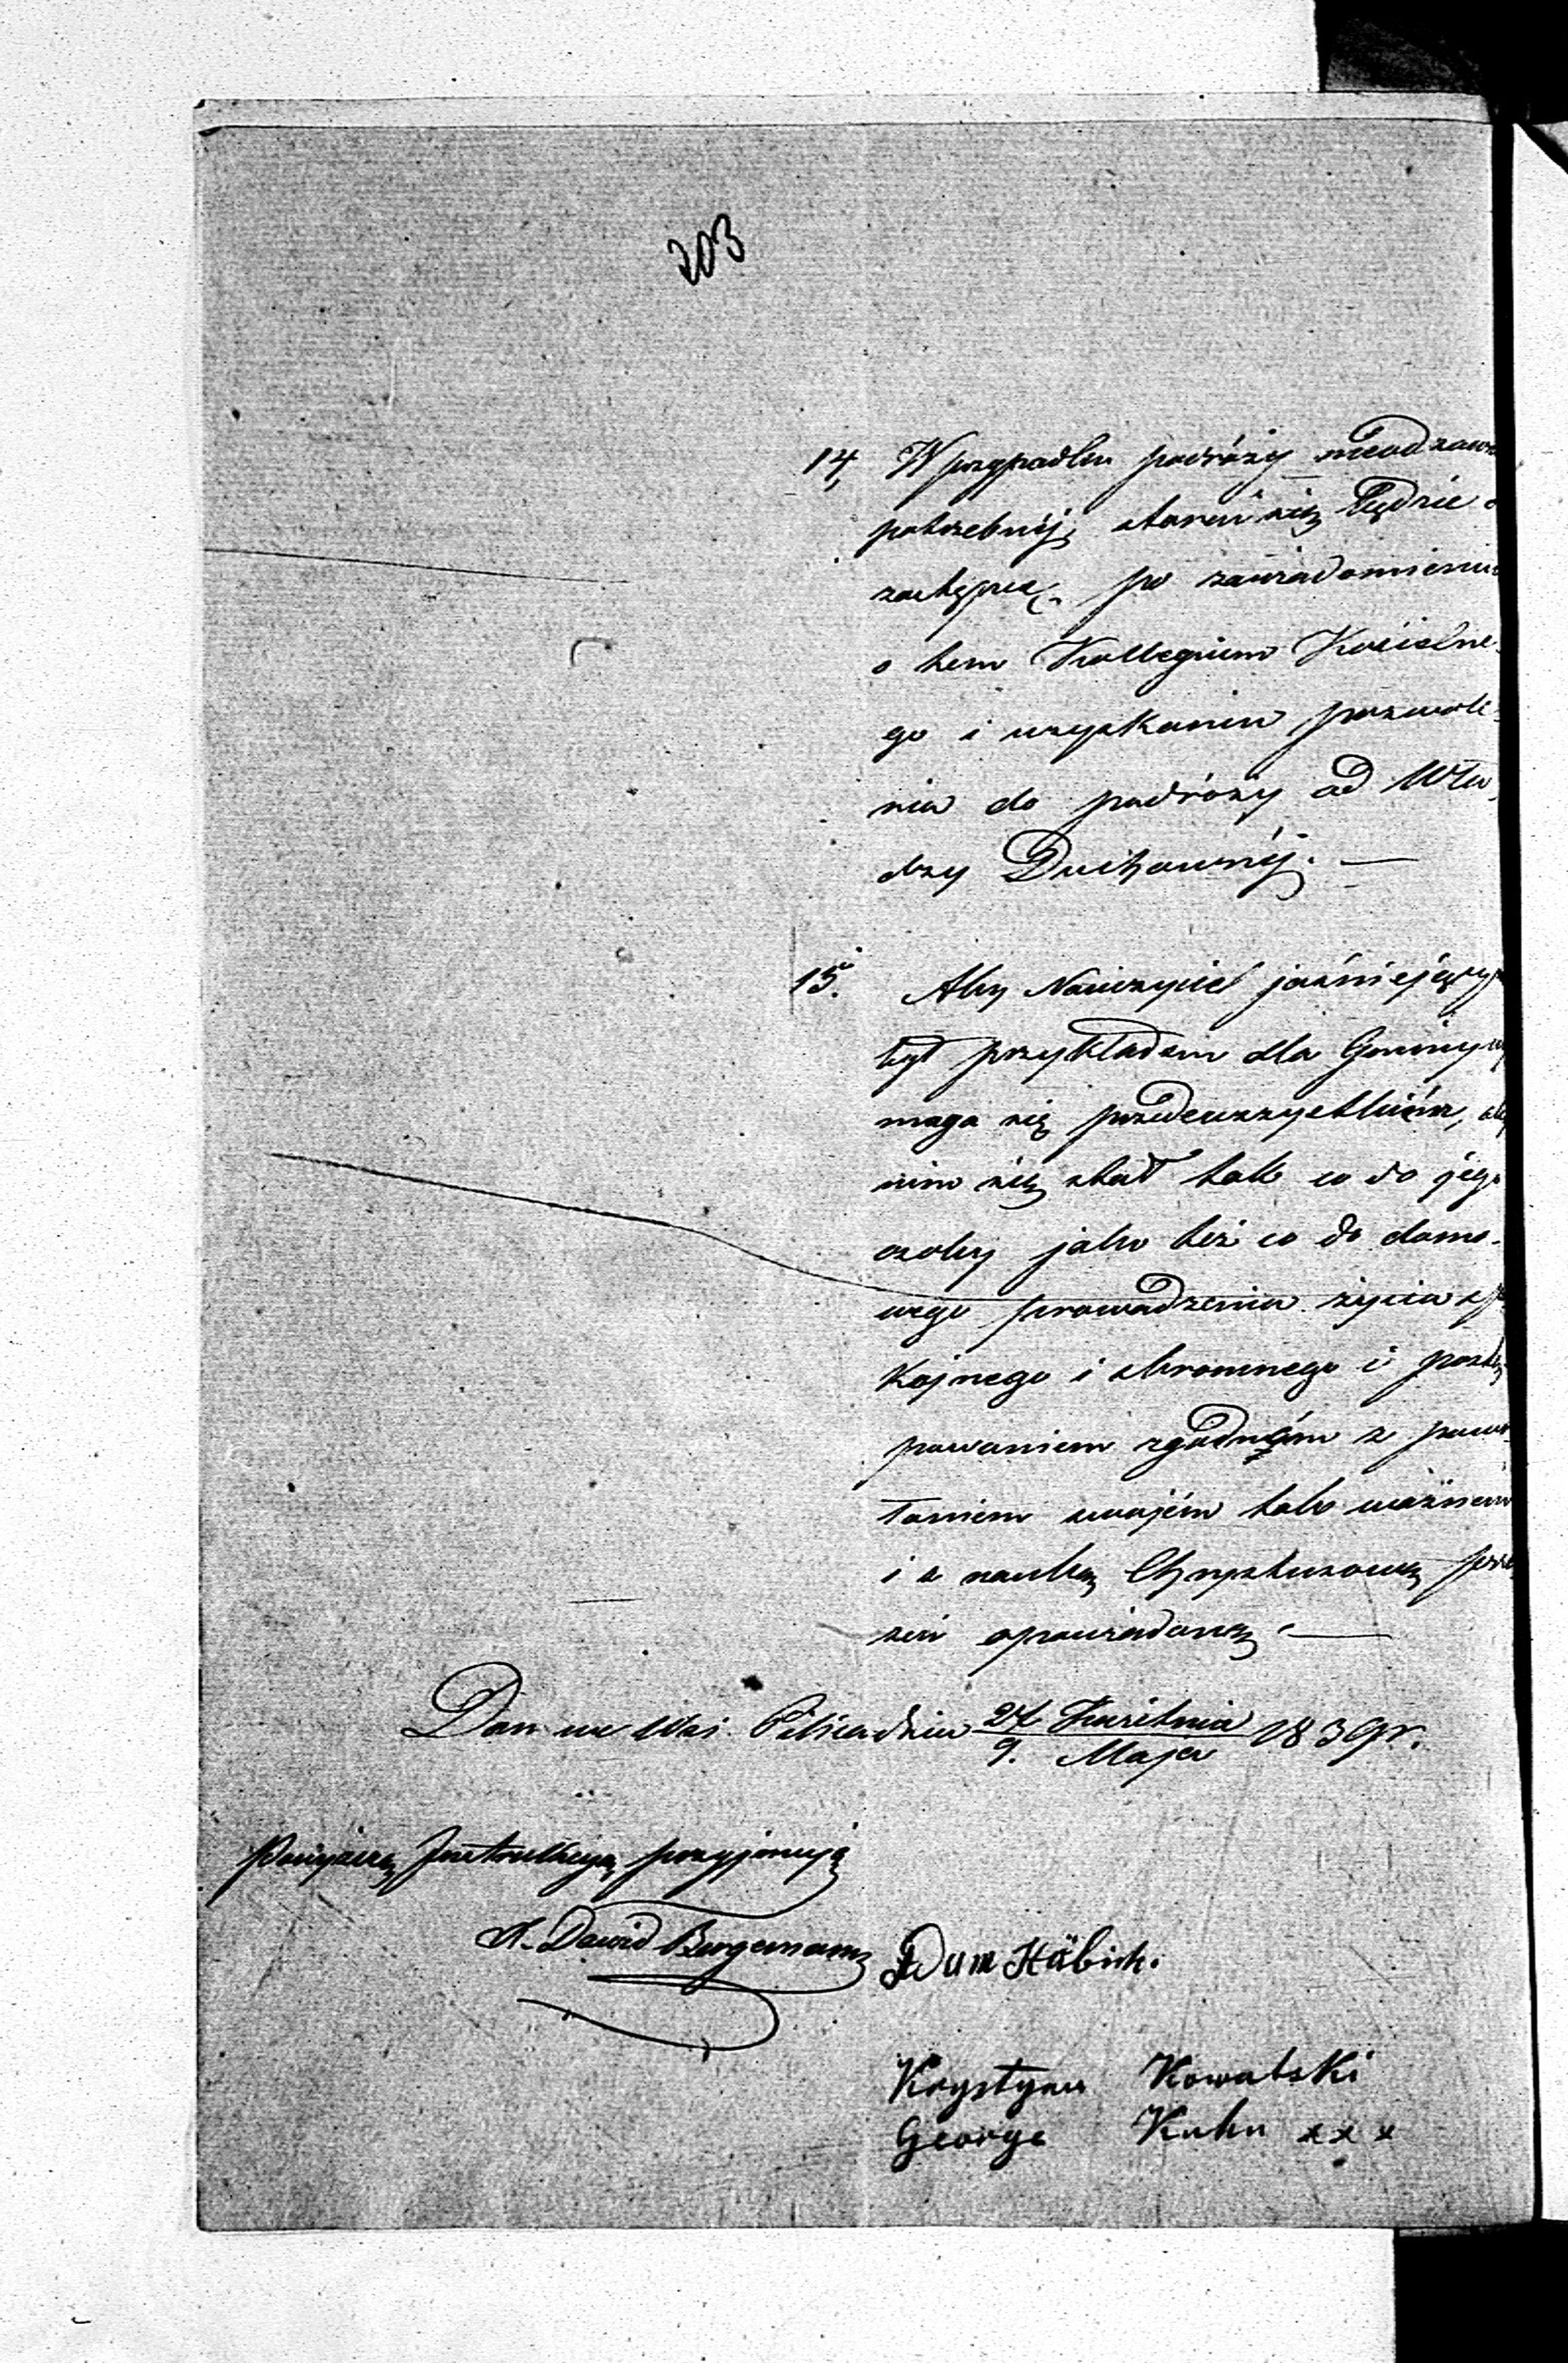 203
14, W przypadku podróży nieodzow
potrzebnéj, starać się będzie o
zastępcę, po zawiadomieniu
o tem Kollegium Kościelne-
go i uzyskaniu pozwole-
nia do podróży od Wła-
dzy Duchownéj. —
15. Aby Nauczyciel jaśniejącym
był przykładem dla Gminy wy
maga się przedewszystkiém, aby
nim się stał tak co do jego
osoby jako też co do domo-
wego prowadzenia życia spo
kojnego i skromnego i postę
powaniem zgodném z powo-
łaniem swojém tak ważnem
i z nauką Chrystusową prze
zeń opowiadaną. —
Dan we Wsi dnia 27 Kwietnia / 9. Maja 1839 r.
Powyższą Instrukcyą przyjmuję
Dawid Bergemann
Adam Häbich.
Krystyan Kowalski
George Kuhn xxx